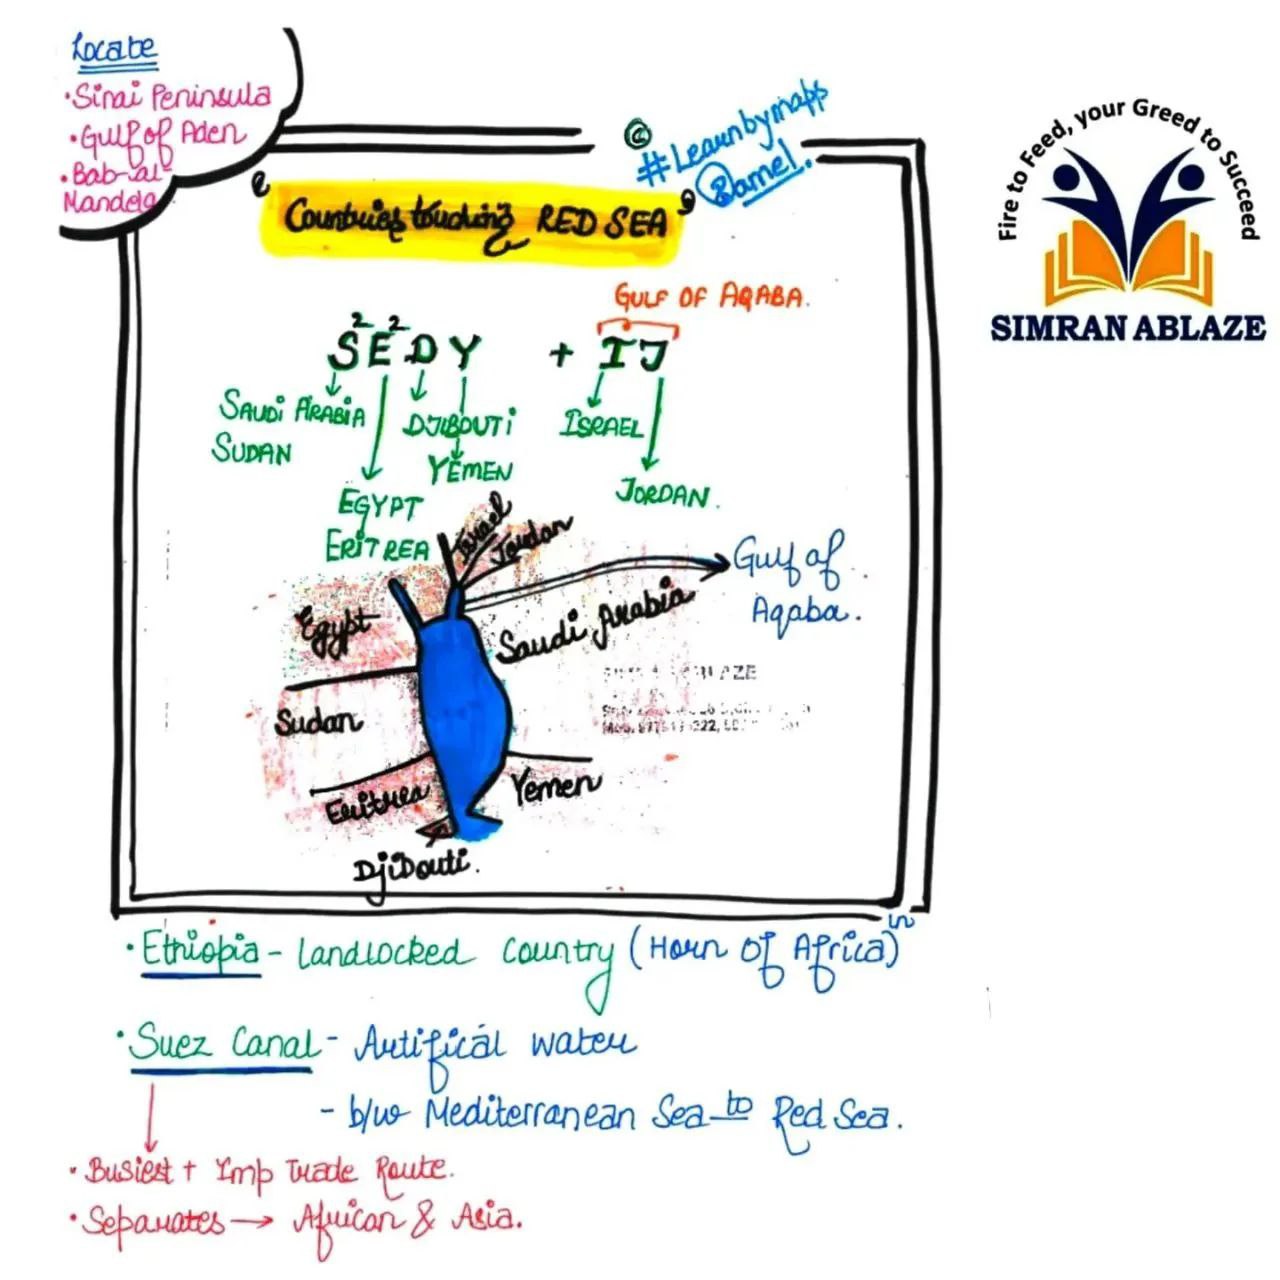 Locate
• Sinai Peninsula
• Gulf of Aden
• Bab-al-
Mandela
©
#Learnbymapps
Fire to Feed, your Greed to Succeed
SIMRAN ABLAZE
"Countries touching RED SEA"
GULF OF AQABA.
S²E²DY + IJ
SAUDI ARABIA
SUDAN
DJIBOUTI
YEMEN
ISRAEL
JORDAN.
EGYPT
ERITREA
Israel
Jordan
Gulf of
Aqaba.
Egypt
Saudi Arabia
Sudan
Eritrea
Yemen
DjiBouti.
• Ethiopia - Landlocked country (Horn of Africa) in
• Suez Canal - Artifical water
- b/w Mediterranean Sea to Red Sea.
• Busiest + Imp Trade Route.
• Separates → African & Asia.